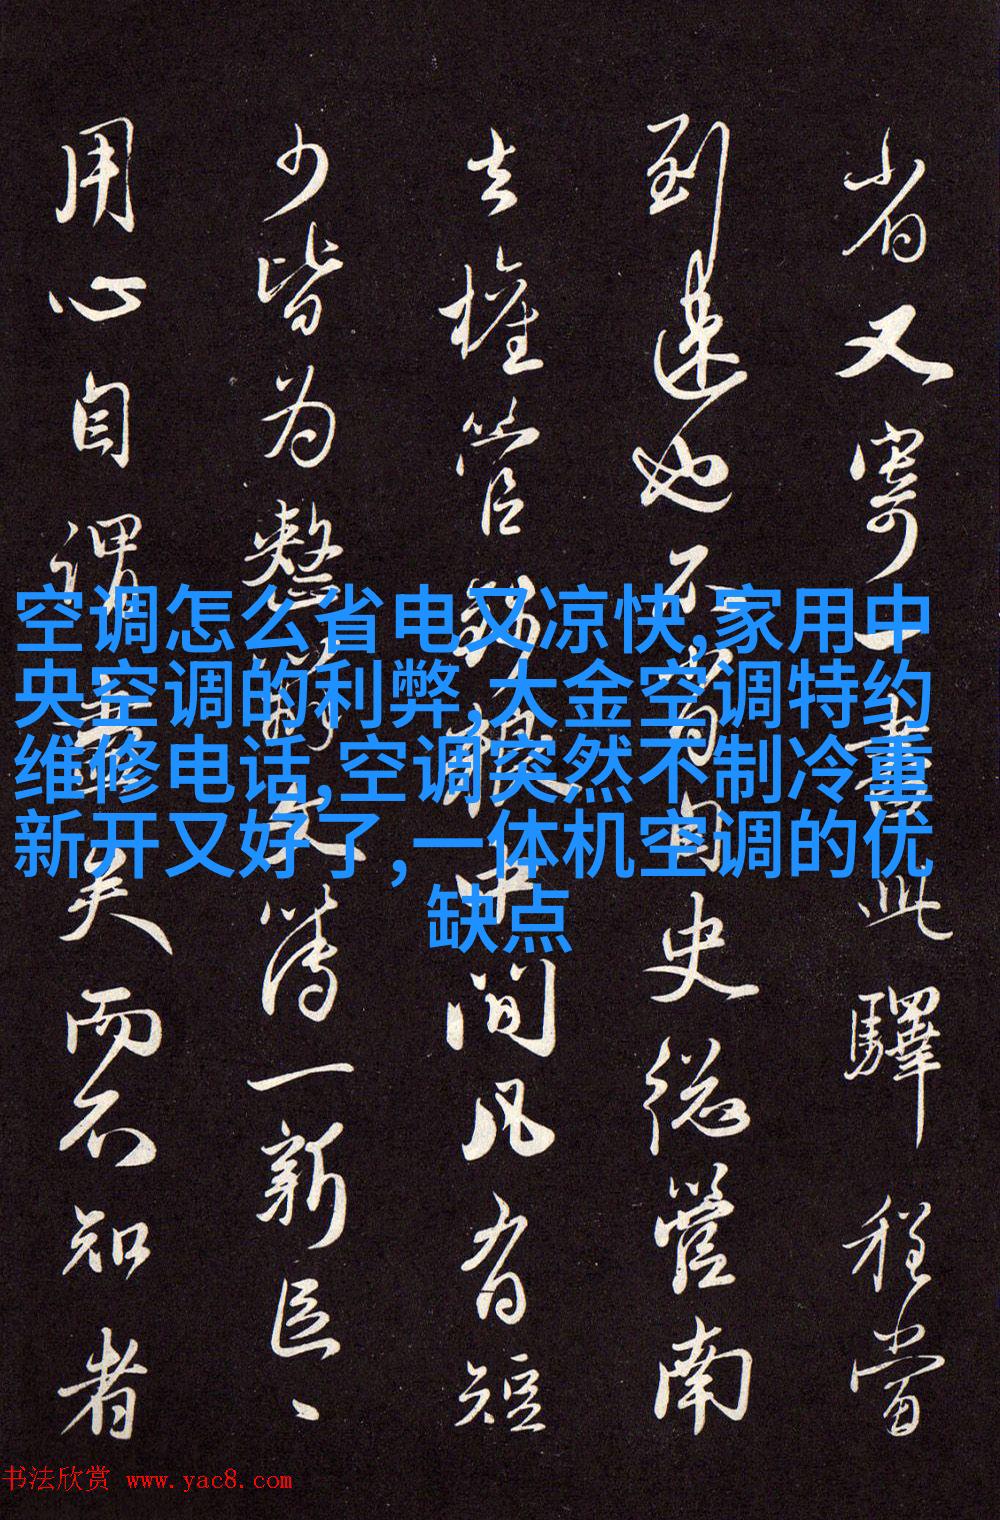 省又寄一書此驛程當
到遠也不
史從管南
去權管
中間凡有短
少皆为整
文簿一新臣、
用心自謂
矣而不知者
空调怎么省电又凉快,家用中
央空调的利弊,大金空调特约
维修电话,空调突然不制冷重
新开又好了,一体机空调的优
缺点
书法欣赏 www.yac8.com